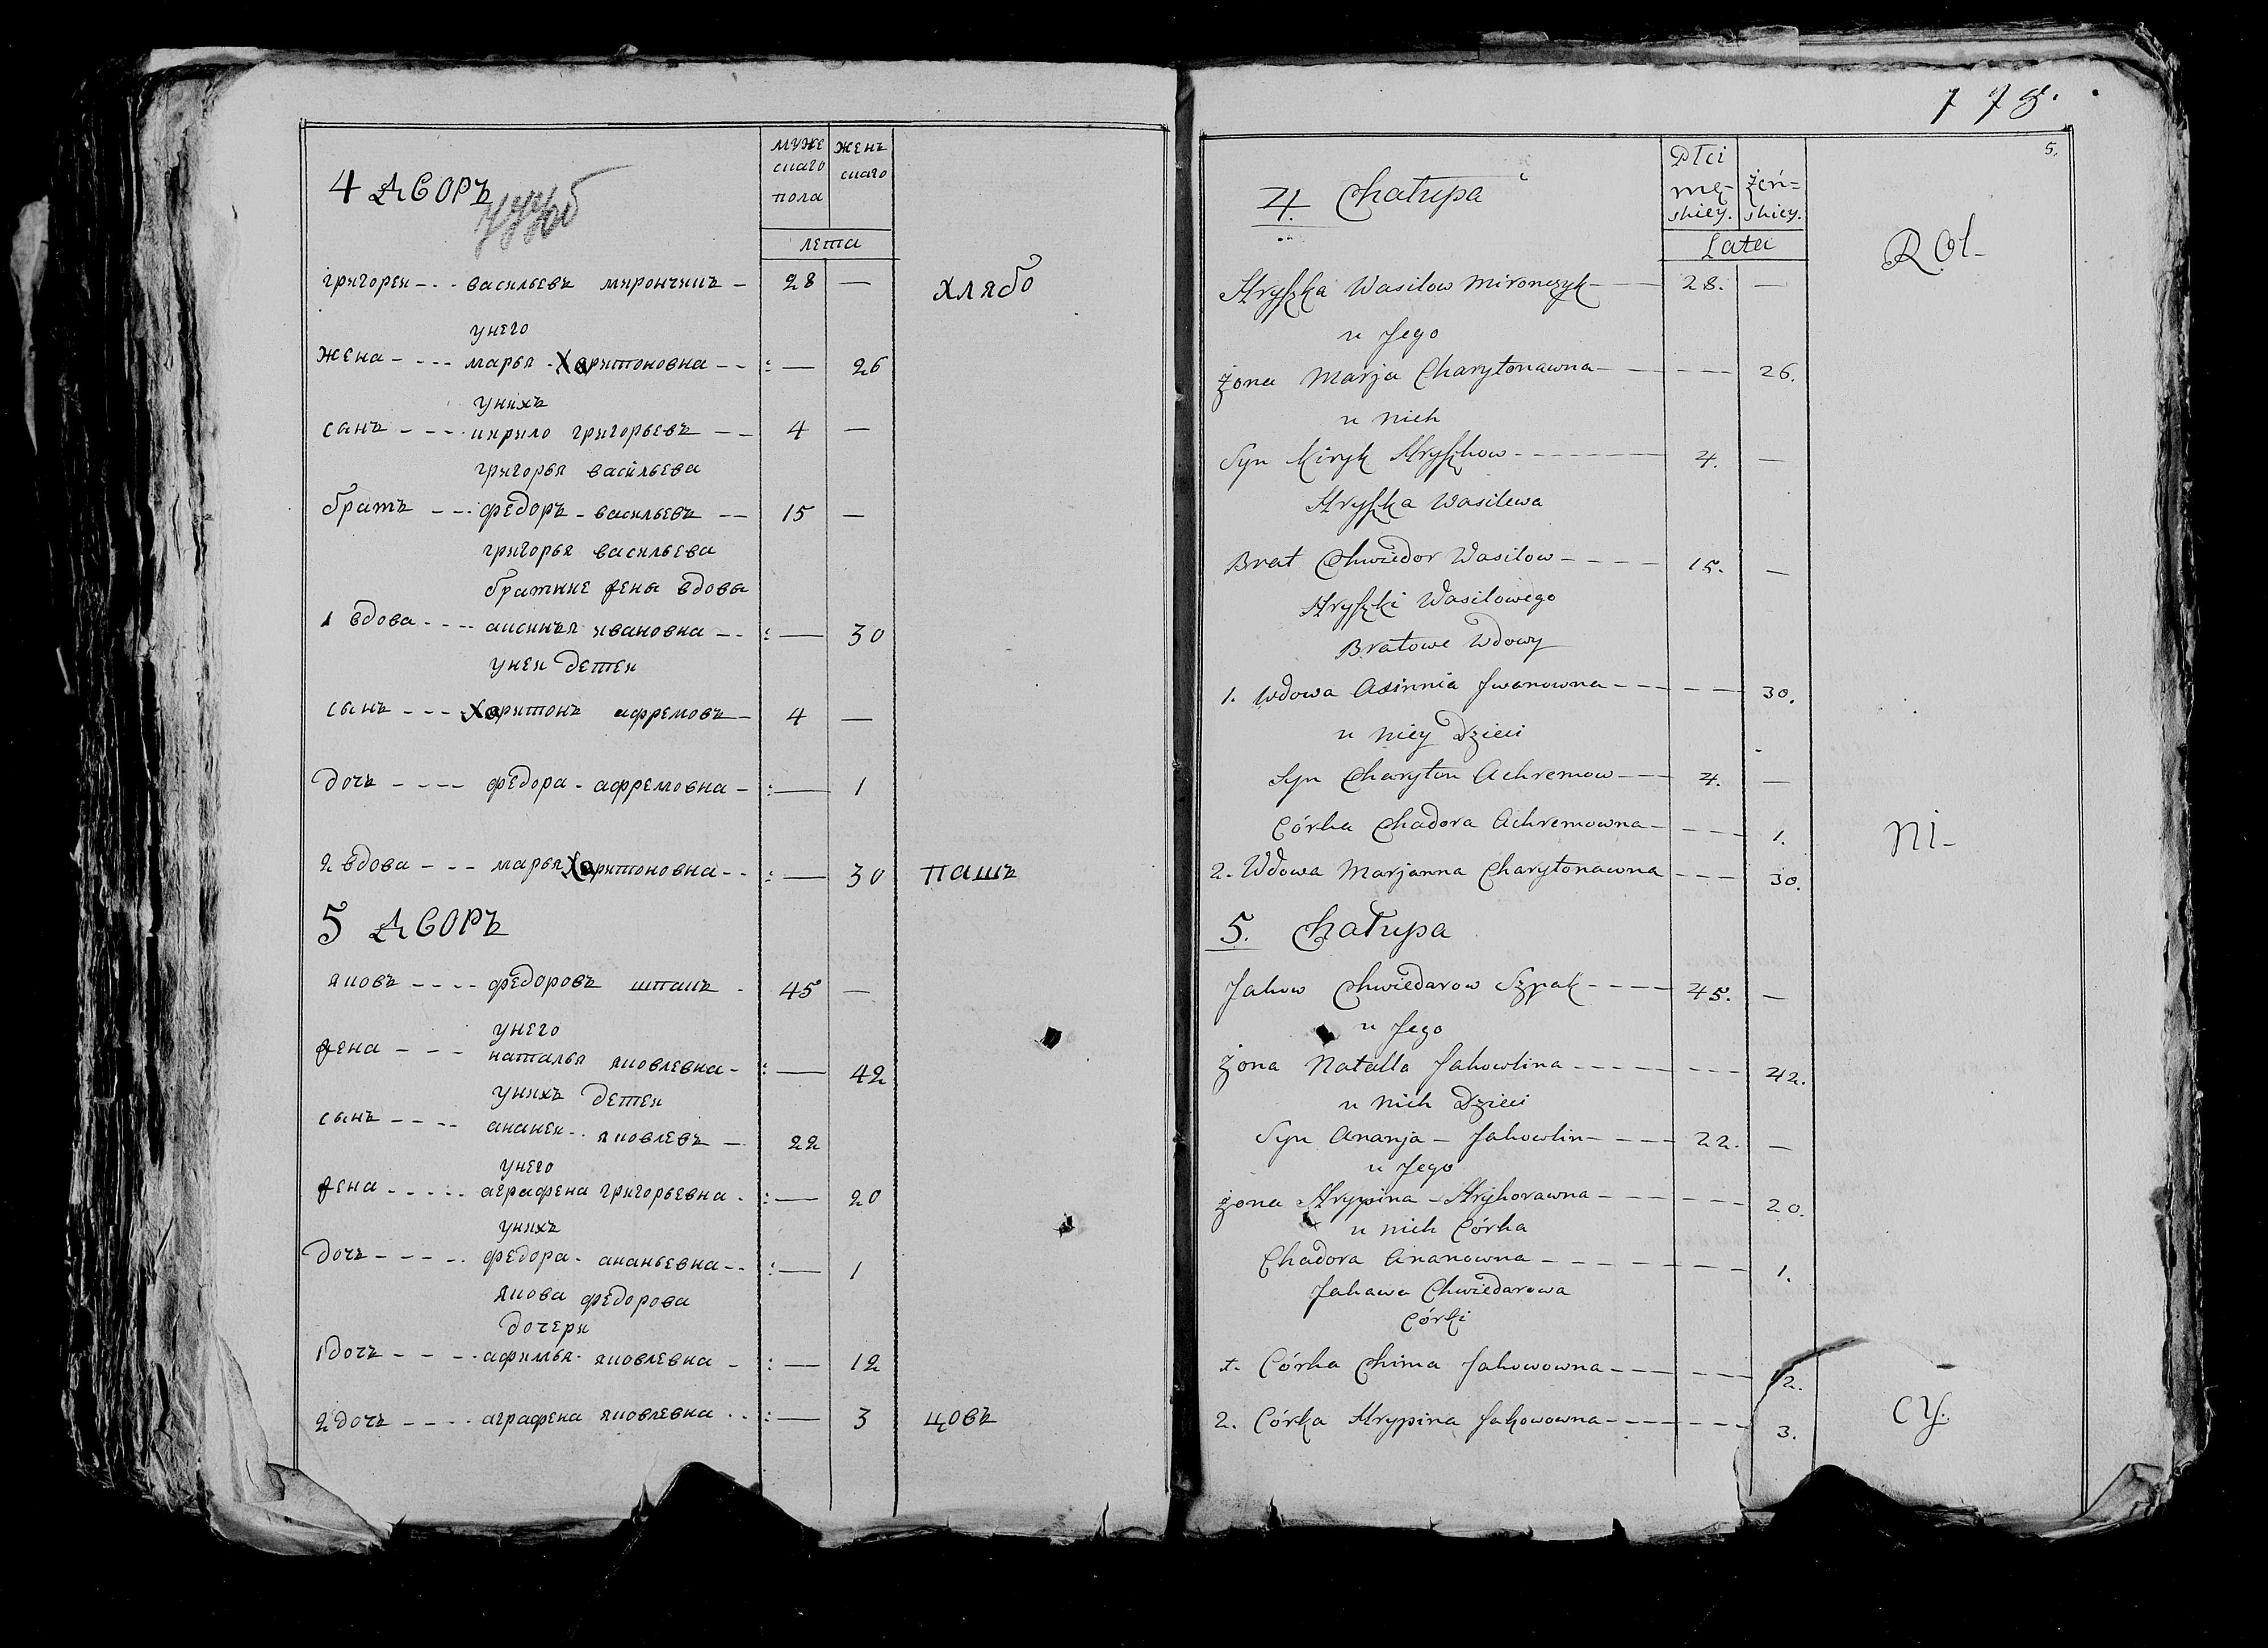 4 ДВОРЪ
МУЖЕ
скаго
пола
ЖЕНЪ
скаго
лета
григореи - - - васильевъ мирончикъ - 28 —
хлябо
унего
жена - - - - марья - Харитоновна - - : — 26
унихъ
санъ - - - - кирило григорьевъ - - 4 —
григорья васильева
братъ - - - федоръ - васильевъ - - 15 —
григорья васильева
братние жены вдовы
1 вдова - - - - аксинья ивановна - - : — 30
унеи детеи
сынъ - - - - Харитонъ афремовъ - 4 —
дочъ - - - - федора - афремовна - : — 1
2 вдова - - - марья Харитоновна - - : — 30 пашъ
5 ДВОРЪ
яковъ - - - - федоровъ шпакъ - 45 —
унего
жена - - - наталья яковлевна - : — 42
унихъ детеи
сынъ - - - - ананеи - - яковлевъ - 22
унего
жена - - - - - аграфена григорьевна - : — 20
унихъ
дочъ - - - - - федора - ананьевна - - : — 1
якова федорова
дочери
1 дочъ - - - - афимья - яковлевна - : — 12
2 дочъ - - - - аграфена яковлевна - - : — 3 цовъ
5.
4. Chałupa
Płci
mę-
skiey.
żeń=
skiey.
Lata
Rol-
Hryszka Wasilow Mironczyk - - 28. —
u Jego
żona Marja Charytonawna - - - - 26.
u nich
Syn Kiryk Hryszkow - - - - - - 4. —
Hryszka Wasilewa
Brat Chwiedor Wasilow - - - - 15. —
Hryszki Wasilowego
Bratowe Wdowy
1. Wdowa Axinnia Jwanowna - - - - - 30.
u niey Dzieci
Syn Charyton Achremow - - - 4. —
Córka Chadora Achremowna - - - - 1.
ni-
2. Wdowa Marjanna Charytonawna - - - 30.
5. Chałupa
Jakow Chwiedarow Szpak - - - - 45. —
u Jego
żona Natalla Jakowlina - - - - - - - - 42.
u nich Dzieci
Syn Ananja - Jakowlin - - - - 22. —
u Jego
żona Hrypina - Hryhorawna - - - - - - 20.
u nich Córka
Chadora Ananowna - - - - - - - - 1.
Jakawa Chwiedarowa
Córki
1. Córka Chima Jakowowna - - - - - - 12.
2. Córka Hrypina Jakowowna - - - - - - 3.
cy.